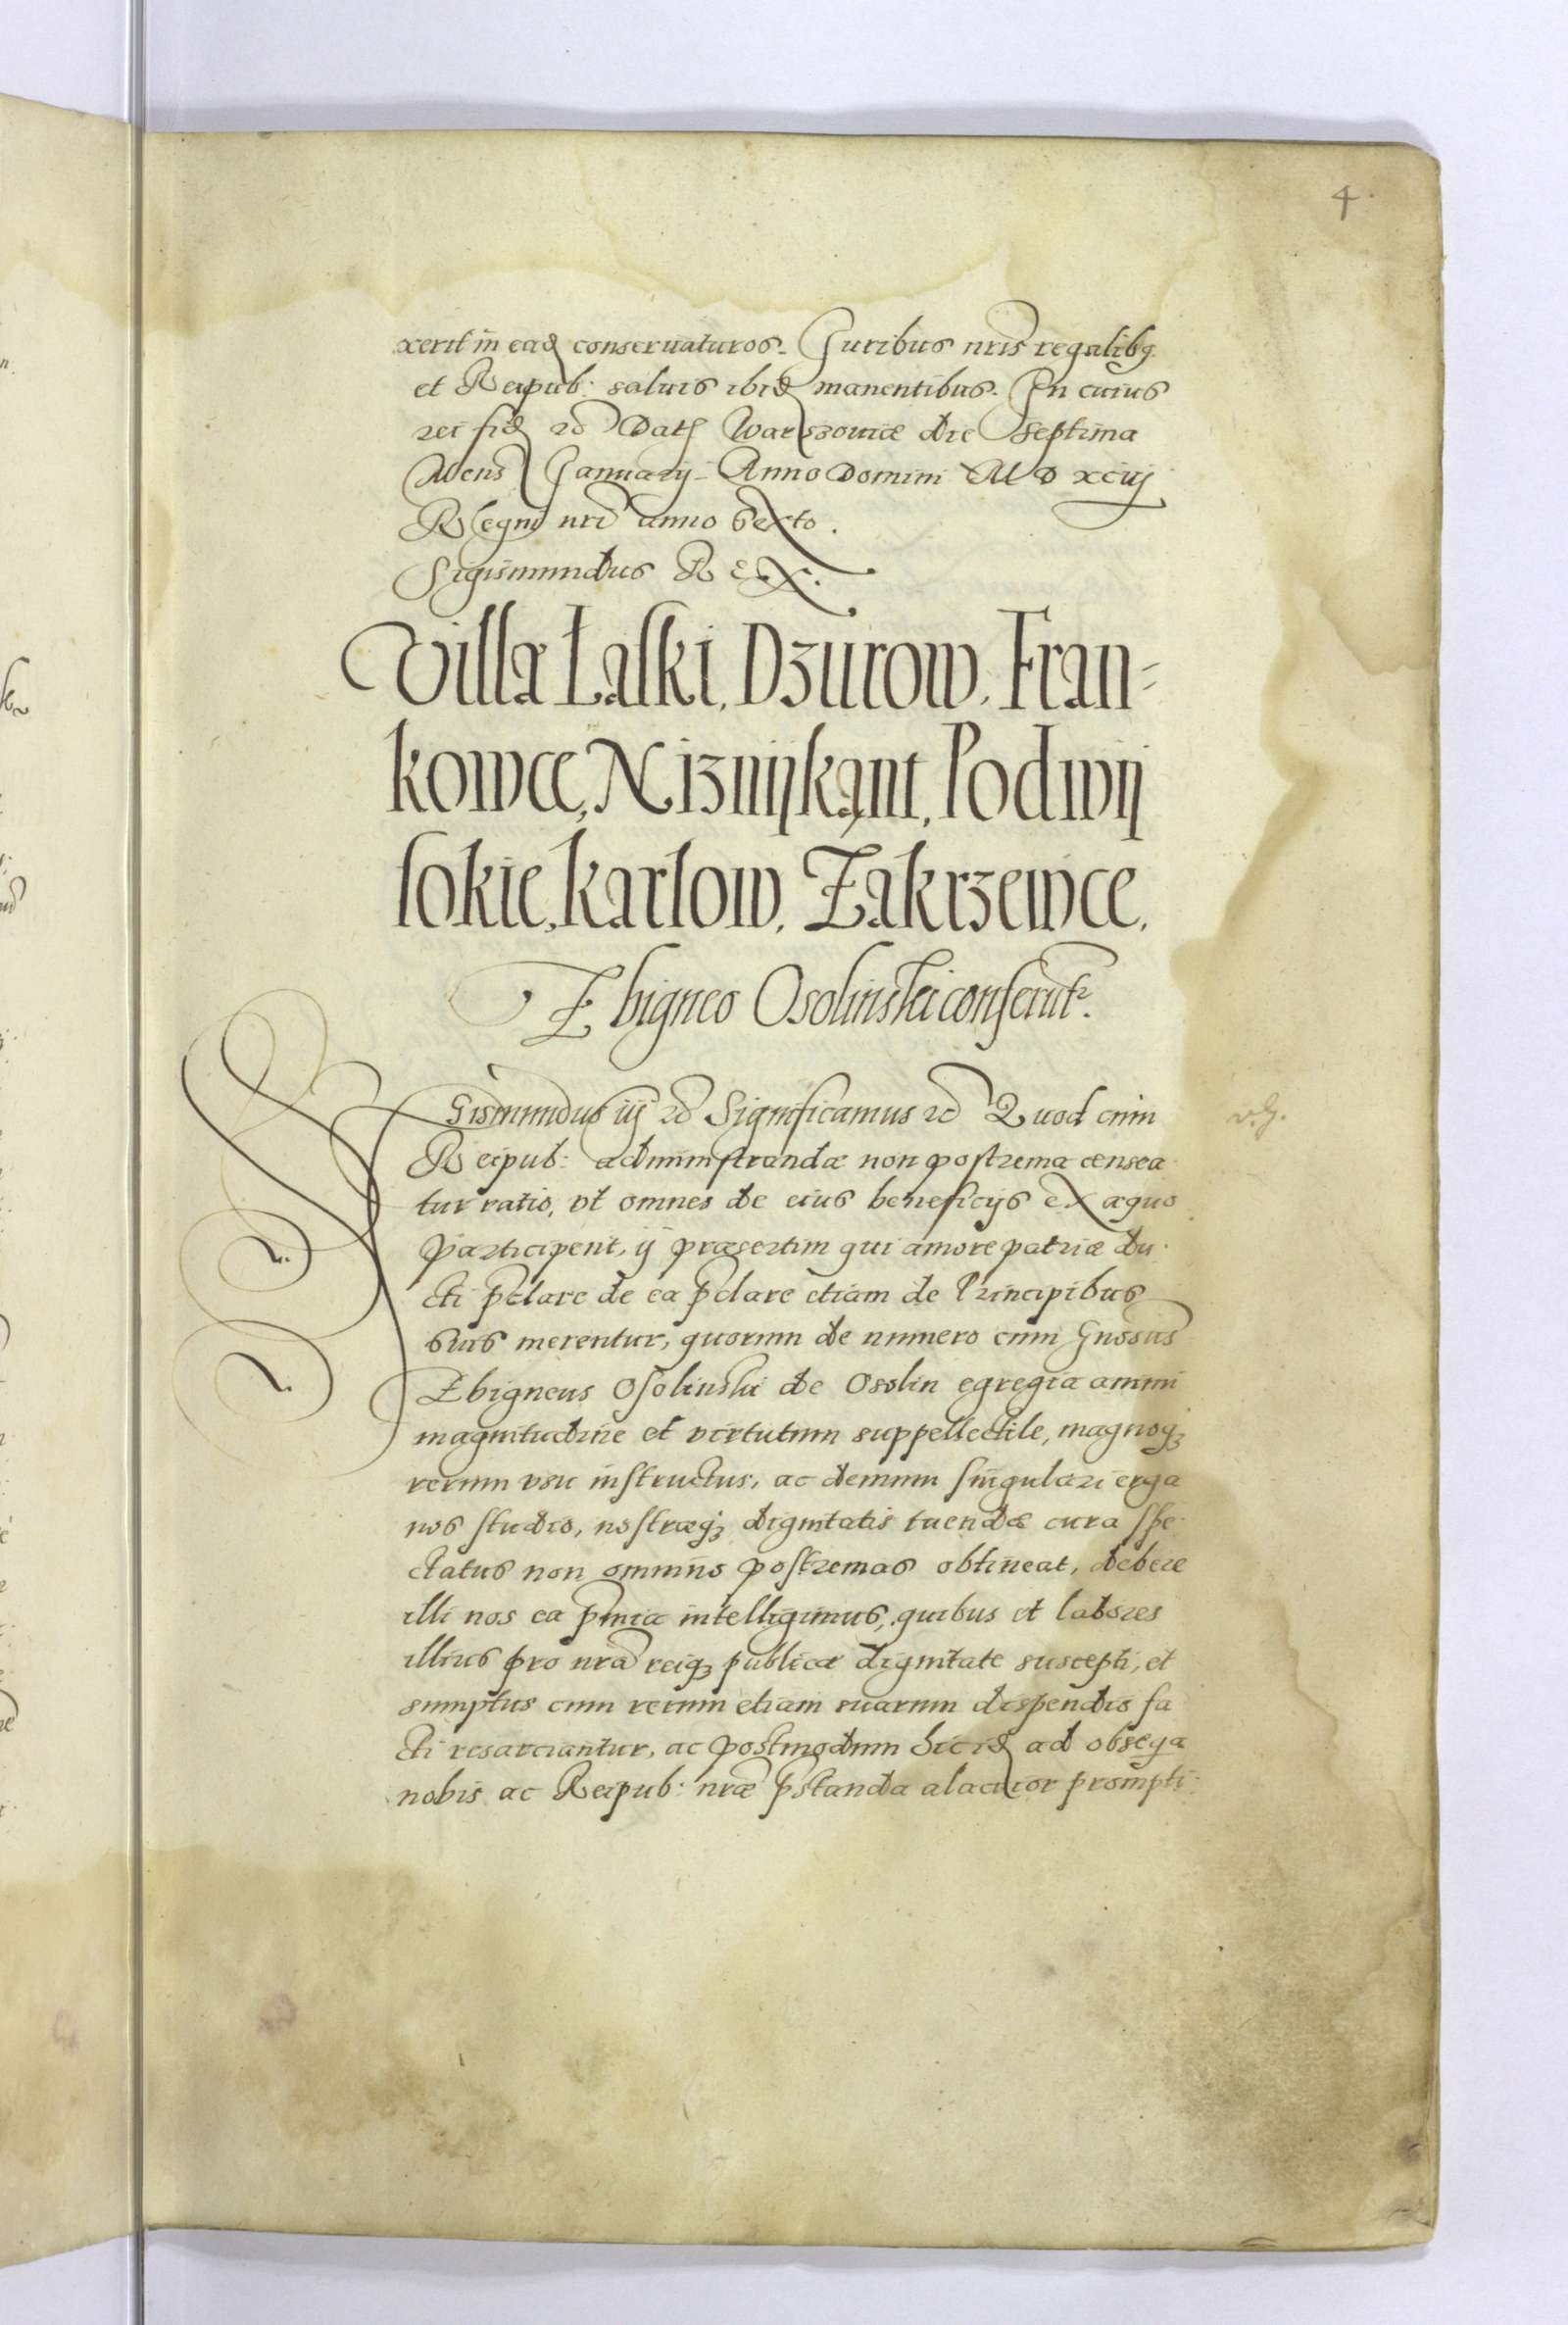 4
xerit in eadē conseruaturos. Juribus nris regalibq
et Reipub: saluis ibidē manentibus. In cuius
rei fidē etc Datū Warszouiæ die Septima
Mens Januarij Anno Domini M D xciij
Regni nri anno Sexto.
Sigismundus REX.
Villæ Łaski, Dzurow, Fran-
kowce, Niznijkąnt, Podwij
sokie, karlow, Zakrzewce,
Zbigneo Osolinski conferūtr.
SIGismundus iij etc Significamus etc Quod enim
Reipub: administrandæ non postrema censea
tur ratio, vt omnes de eius beneficijs ex æquo
participent, ij præsertim qui amore patriæ du-
cti pclare de ea pclare etiam de Principibus
suis merentur, quorum de numero cum Gnosus
Zbigneus Osolinski de Osolin egregia animi
magnitudine et virtutum suppellectile, magnoq;
rerum vsu instructus, ac demum singulari erga
nos studio, nostræq; dignitatis tuendæ cura spe-
ctatus non omnino postremas obtineat, debere
illi nos ea pmia intelligimus, quibus et labores
illius pro nra reiq; publicæ dignitate suscepti, et
sumptus cum rerum etiam suarum dispendio fa
cti resarciantur, ac postmodum sic idē ad obseqa
nobis ac Reipub: nræ pstanda alacrior prompti-